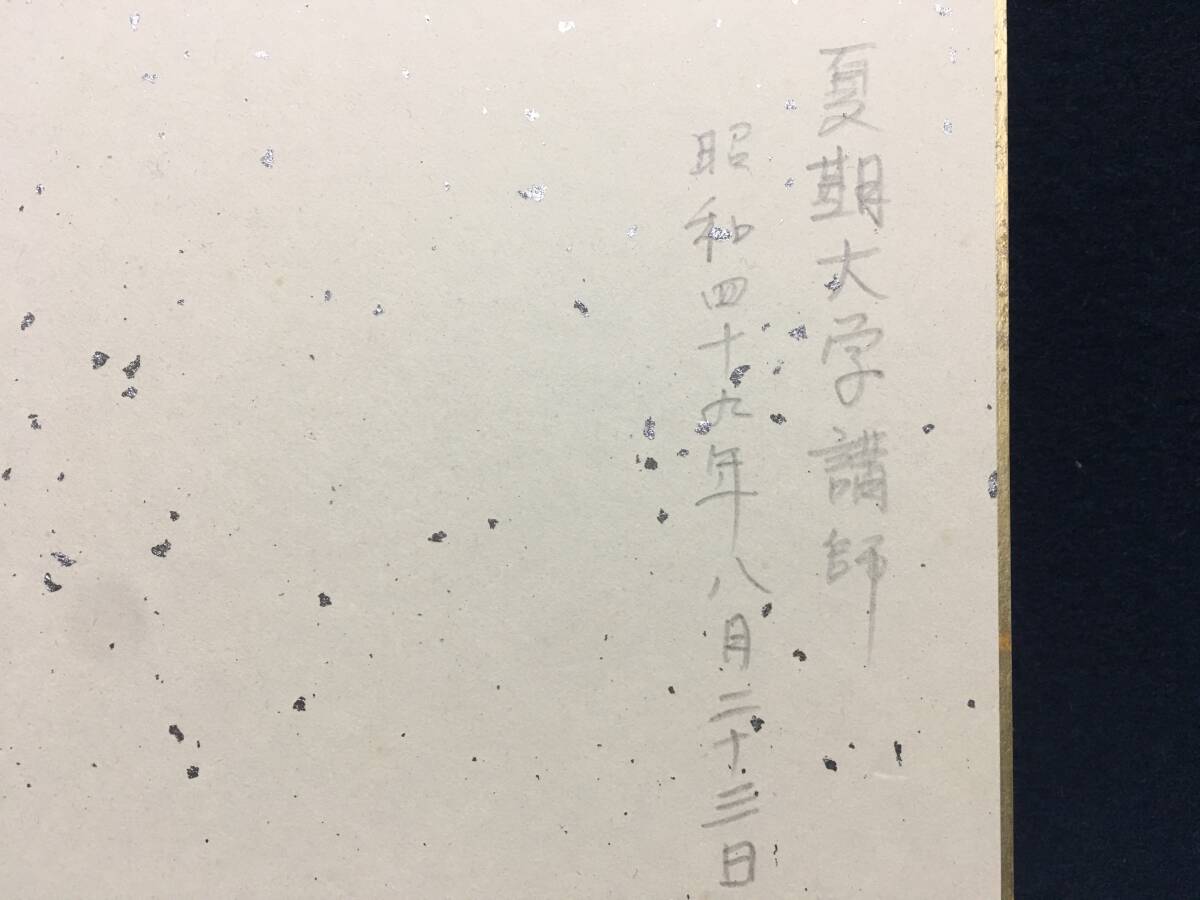 夏期大学講師
昭和四十九年八月二十三日